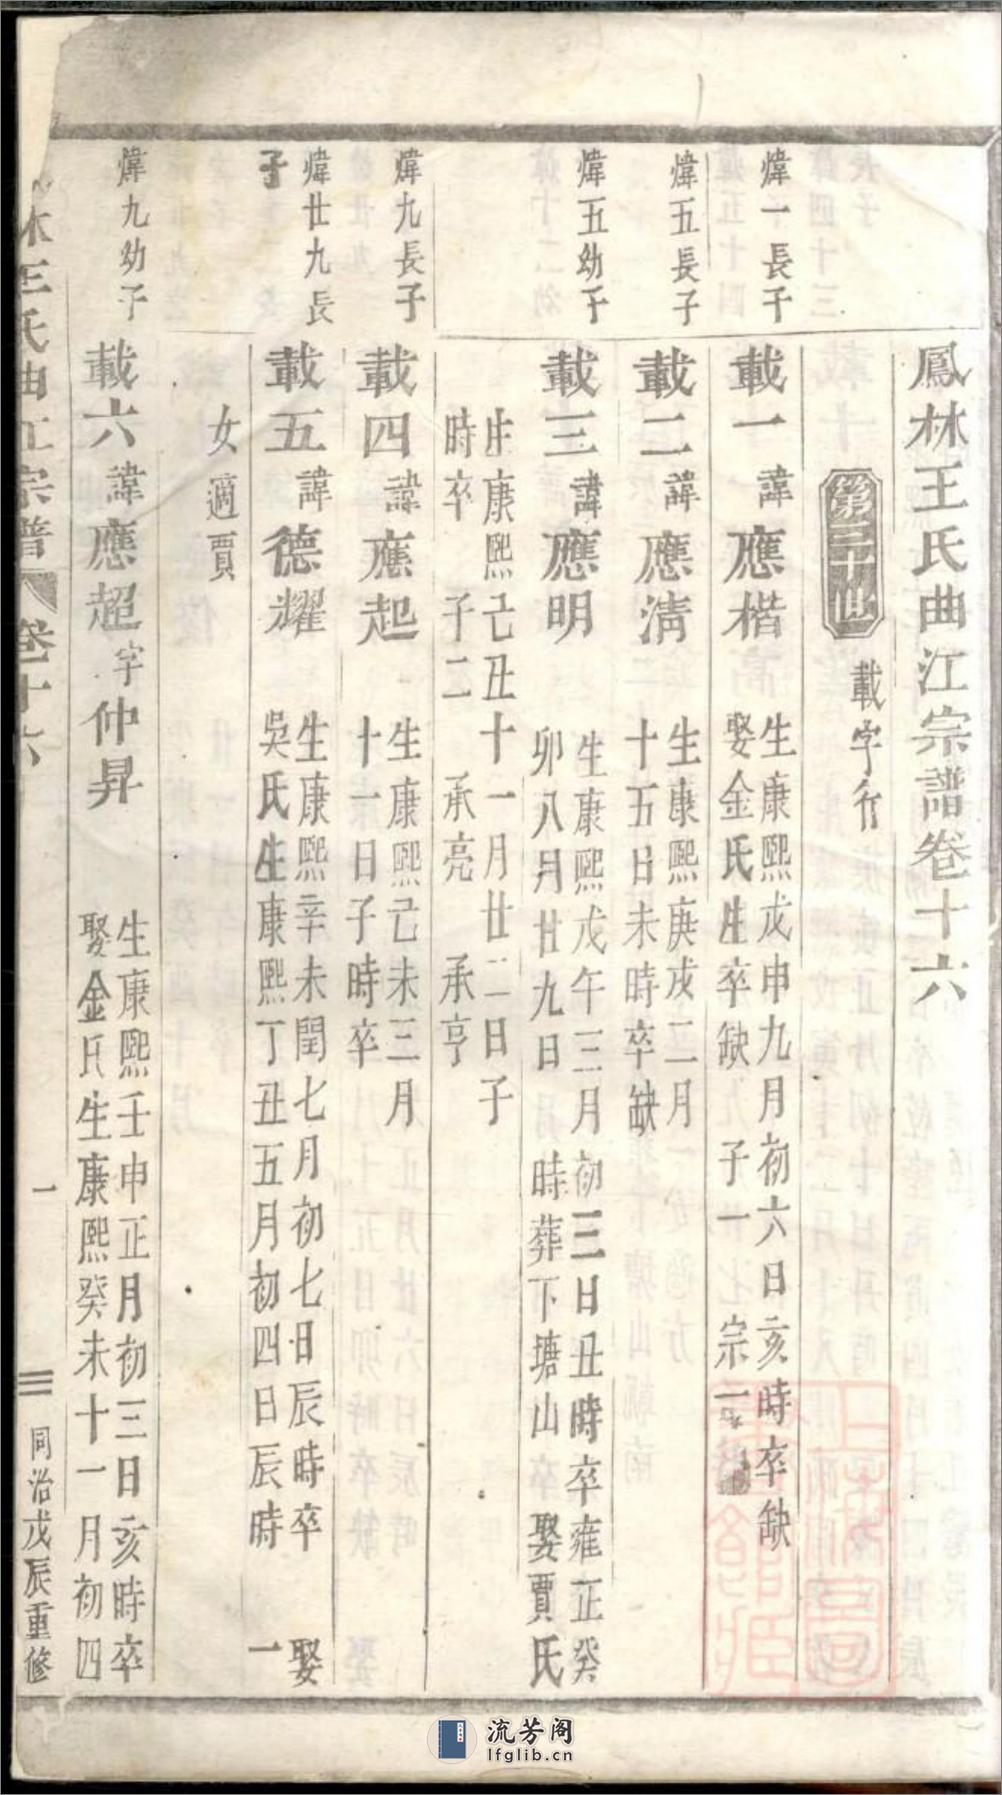 鳳林王氏曲江宗譜卷十六
第三十世 載字行
煒一長子
載一諱應楷
生康熙戊申九月初六日亥時卒缺
娶金氏生卒缺 子一 宗一
煒五長子
載二諱應淸
生康熙庚戌二月
十五日未時卒缺
煒五幼子
載三諱應明
生康熙戊午三月初三日丑時卒雍正癸
卯八月廿九日 時葬下塘山 娶賈氏
生康熙己丑十一月廿二日子
時卒 子二 承亮 承亨
煒九長子
載四諱應起
生康熙己未三月
十一日子時卒
煒廿九長
子
載五諱德耀
生康熙辛未閏七月初七日辰時卒 娶
吳氏生康熙丁丑五月初四日辰時 一
女適賈
煒九幼子
載六諱應超字仲昇
生康熙壬申正月初三日亥時卒
娶金氏生康熙癸未十一月初四
林王氏曲江宗譜 卷十六 一 同治戊辰重修
流芳阁
lfglib.cn